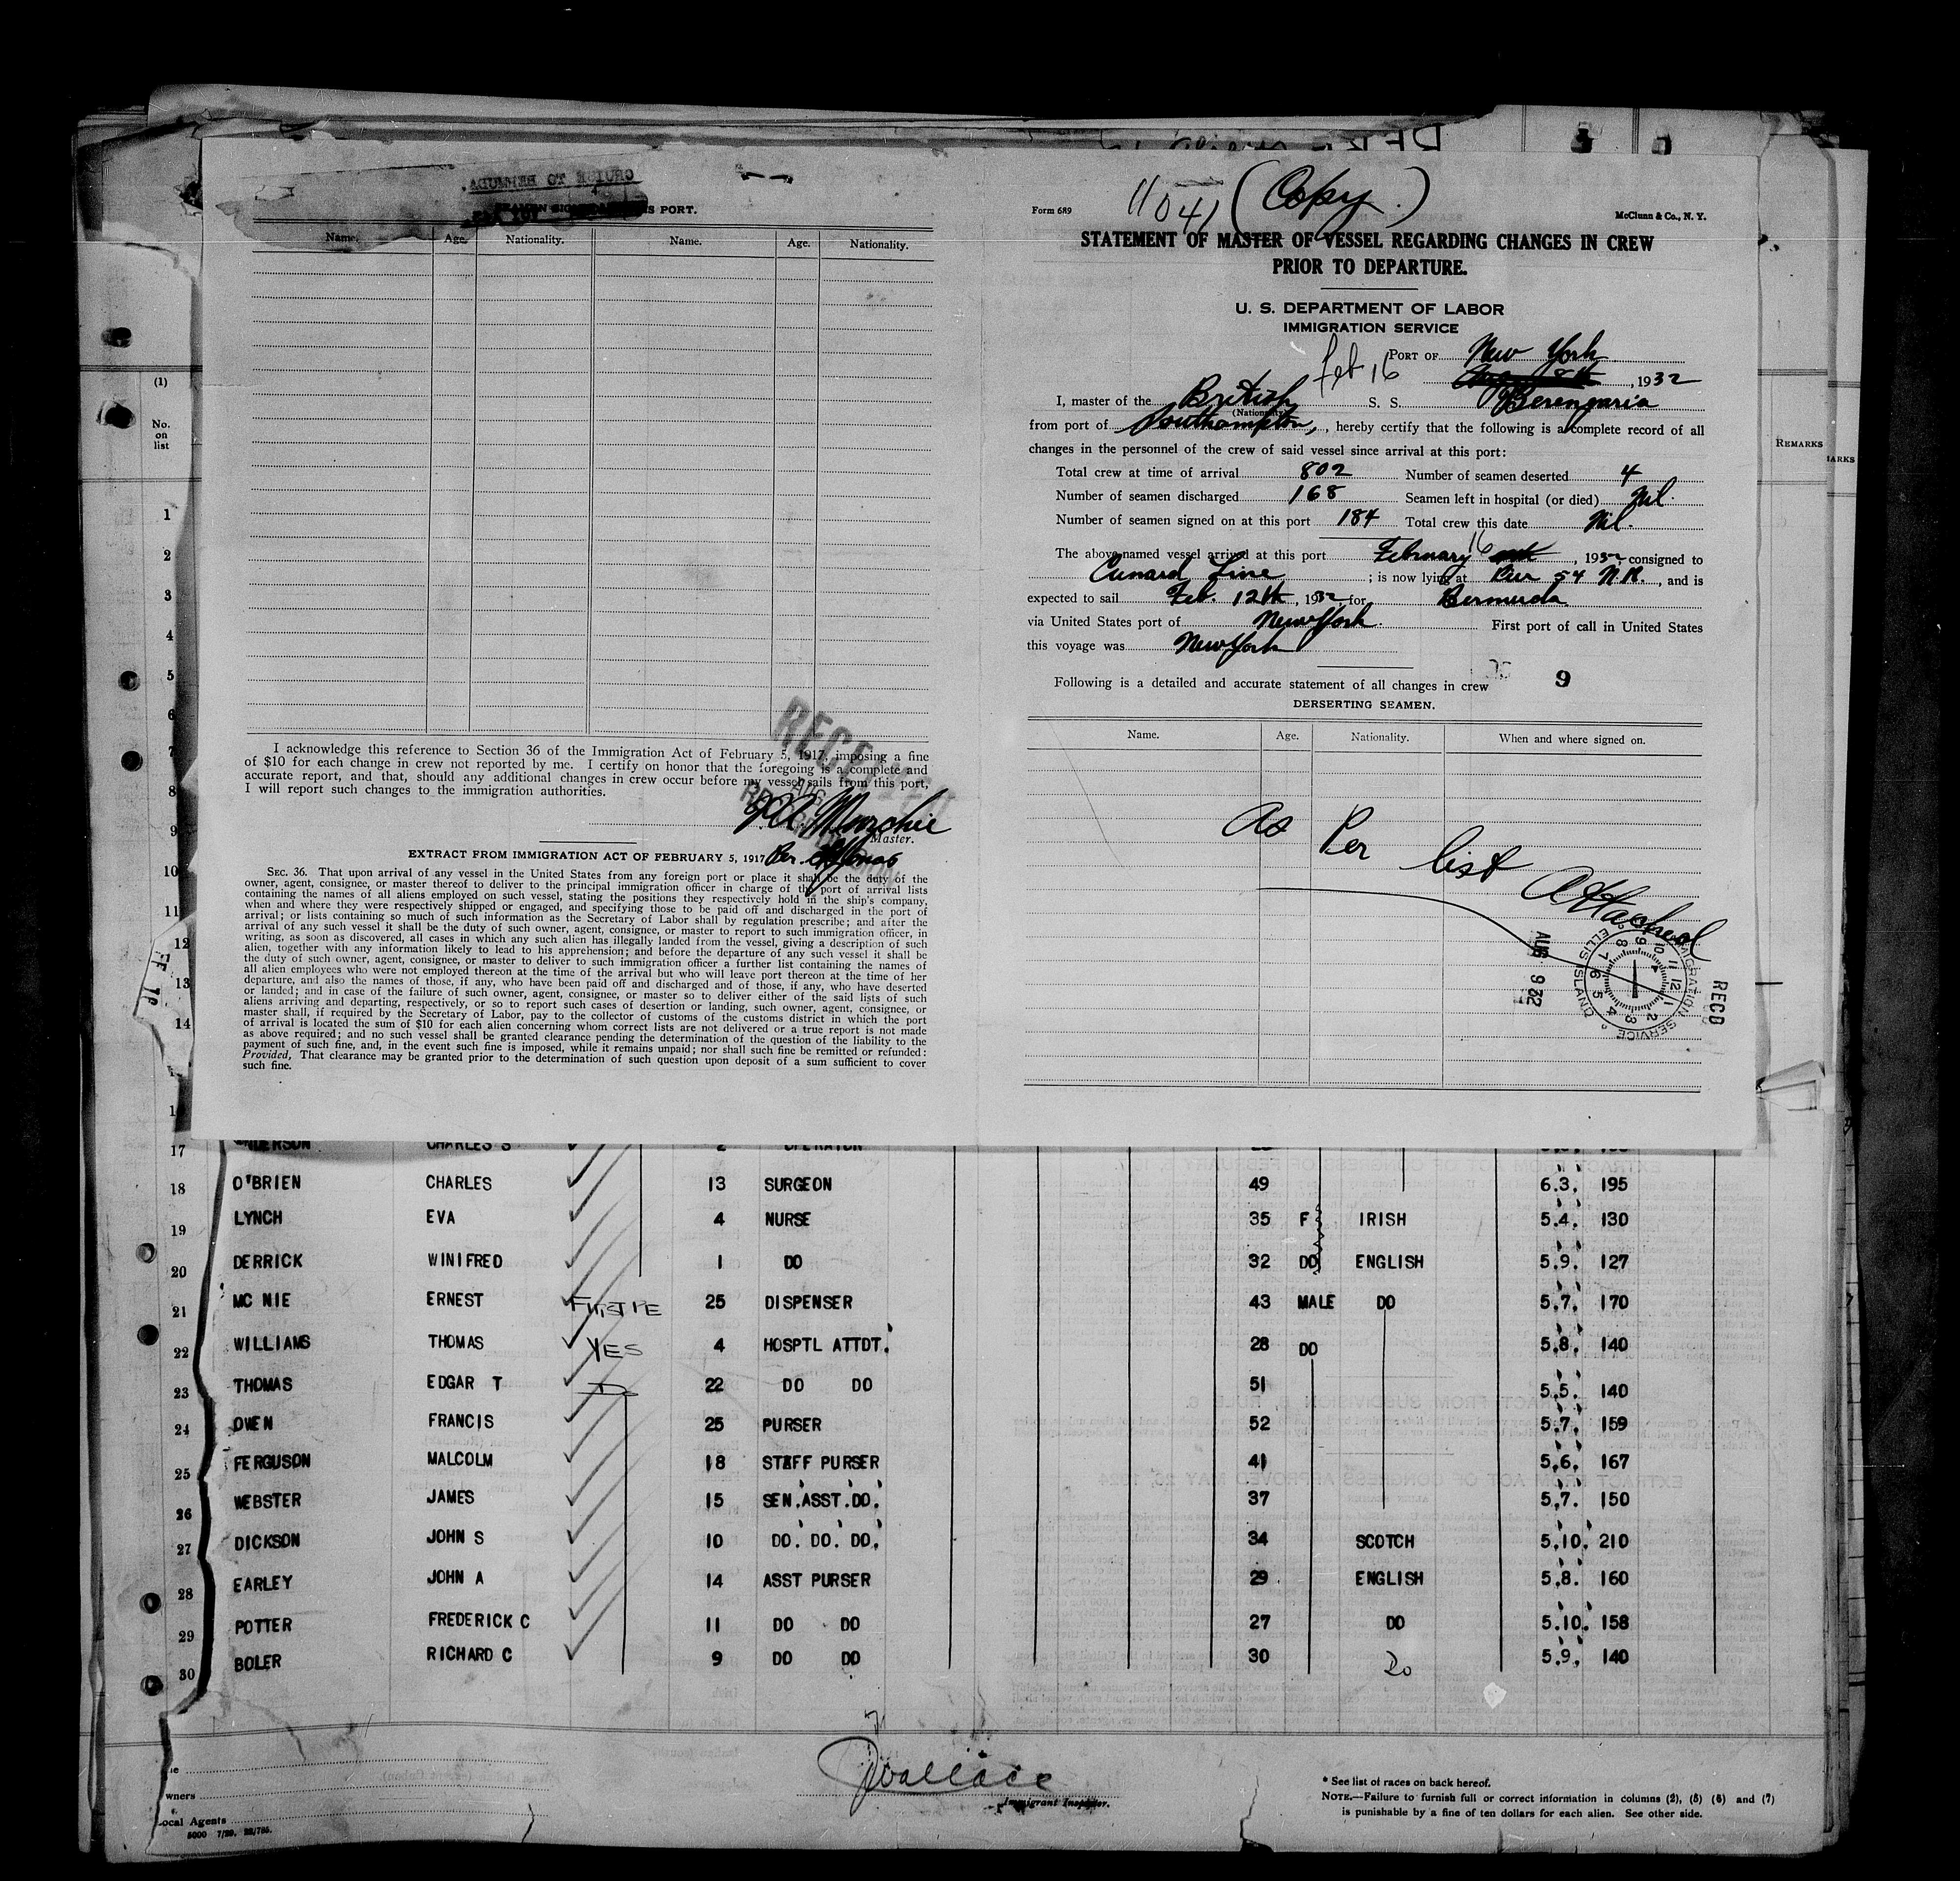 CRUISE TO BERMUDA.
S PORT.
Name. Age. Nationality. Name. Age. Nationality.
I acknowledge this reference to Section 36 of the Immigration Act of February 5, 1917, imposing a fine
of $10 for each change in crew not reported by me. I certify on honor that the foregoing is a complete and
accurate report, and that, should any additional changes in crew occur before my vessel sails from this port,
I will report such changes to the immigration authorities.
RECEIVED
Master.
EXTRACT FROM IMMIGRATION ACT OF FEBRUARY 5, 1917
Per
SEC. 36. That upon arrival of any vessel in the United States from any foreign port or place it shall be the duty of the
owner, agent, consignee, or master thereof to deliver to the principal immigration officer in charge of the port of arrival lists
containing the names of all aliens employed on such vessel, stating the positions they respectively hold in the ship's company,
when and where they were respectively shipped or engaged, and specifying those to be paid off and discharged in the port of
arrival; or lists containing so much of such information as the Secretary of Labor shall by regulation prescribe; and after the
arrival of any such vessel it shall be the duty of such owner, agent, consignee, or master to report to such immigration officer, in
writing, as soon as discovered, all cases in which any such alien has illegally landed from the vessel, giving a description of such
alien, together with any information likely to lead to his apprehension; and before the departure of any such vessel it shall be
the duty of such owner, agent, consignee, or master to deliver to such immigration officer a further list containing the names of
all alien employees who were not employed thereon at the time of the arrival but who will leave port thereon at the time of her
departure, and also the names of those, if any, who have been paid off and discharged and of those, if any, who have deserted
or landed; and in case of the failure of such owner, agent, consignee, or master so to deliver either of the said lists of such
aliens arriving and departing, respectively, or so to report such cases of desertion or landing, such owner, agent, consignee, or
master shall, if required by the Secretary of Labor, pay to the collector of customs of the customs district in which the port
of arrival is located the sum of $10 for each alien concerning whom correct lists are not delivered or a true report is not made
as above required; and no such vessel shall be granted clearance pending the determination of the question of the liability to the
payment of such fine, and, in the event such fine is imposed, while it remains unpaid; nor shall such fine be remitted or refunded:
Provided, That clearance may be granted prior to the determination of such question upon deposit of a sum sufficient to cover
such fine.
Form 689 11041 (Copy.) McClunn & Co., N. Y.
STATEMENT OF MASTER OF VESSEL REGARDING CHANGES IN CREW
PRIOR TO DEPARTURE.
U. S. DEPARTMENT OF LABOR
IMMIGRATION SERVICE
PORT OF New York
Feb 16 , 1932
I, master of the British S. S. Berengaria
(Nationality)
from port of Southampton, , hereby certify that the following is a complete record of all
changes in the personnel of the crew of said vessel since arrival at this port:
Total crew at time of arrival 802 Number of seamen deserted 4
Number of seamen discharged 168 Seamen left in hospital (or died) Nil.
Number of seamen signed on at this port 184 Total crew this date Nil.
The above-named vessel arrived at this port February 16 , 1932, consigned to
Cunard Line ; is now lying at Pier 54 N.R. , and is
expected to sail Feb. 12th , 1932, for Bermuda
via United States port of New York. First port of call in United States
this voyage was New York
9
Following is a detailed and accurate statement of all changes in crew
DERSERTING SEAMEN.
Name. Age. Nationality. When and where signed on.
As Per list Attached
RECD
IMMIGRATION SERVICE
ELLIS ISLAND
1 2 3 4 5 6 7 8 9 10 11 12
AUG 9 32
REMARKS
ARKS
(1)
No.
on
list
1
2
3
4
5
6
7
8
9
10
11
12
13
14
17 CHARLES S 2 OPERATOR
18 O'BRIEN CHARLES 13 SURGEON 49 6.3. 195
19 LYNCH EVA 4 NURSE 35 F IRISH 5.4. 130
20 DERRICK WINIFRED 1 DO 32 DO ENGLISH 5.9. 127
21 MC NIE ERNEST 25 DISPENSER 43 MALE DO 5.7. 170
22 WILLIAMS THOMAS YES 4 HOSPTL ATTDT. 28 DO 5.8. 140
23 THOMAS EDGAR T Do 22 DO DO 51 5.5. 140
24 OWEN FRANCIS 25 PURSER 52 5.7. 159
25 FERGUSON MALCOLM 18 STAFF PURSER 41 5.6. 167
26 WEBSTER JAMES 15 SEN.ASST.DO. 37 5.7. 150
27 DICKSON JOHN S 10 DO. DO. DO. 34 SCOTCH 5.10. 210
28 EARLEY JOHN A 14 ASST PURSER 29 ENGLISH 5.8. 160
29 POTTER FREDERICK C 11 DO DO 27 DO 5.10. 158
30 BOLER RICHARD C 9 DO DO 30 Do 5.9. 140
Wallace
Immigrant Inspector.
wners
ocal Agents
* See list of races on back hereof.
NOTE.—Failure to furnish full or correct information in columns (2), (5) (6) and (7)
is punishable by a fine of ten dollars for each alien. See other side.